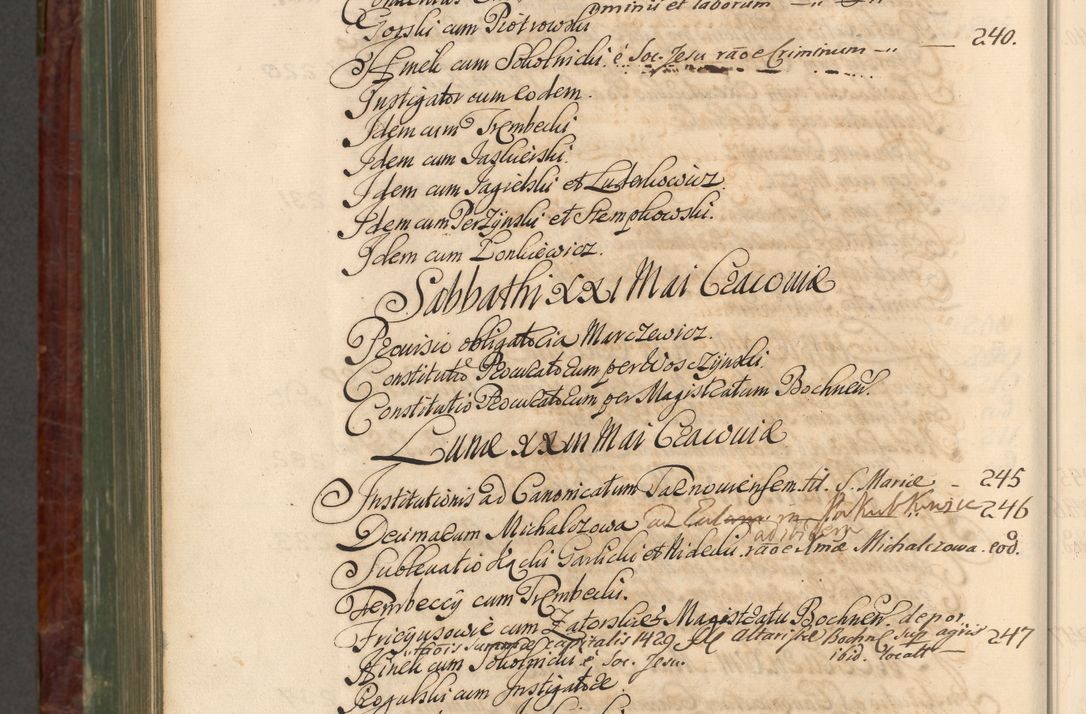 ominii et laborum
Gorski cum Piotrowski
Hinek cum Sokolnicki è Soc. Jesu raõe Criminum — 240.
Instigator cum eodem.
Idem cum Trembecki
Idem cum Jaskierski.
Idem cum Jagielski et Luterkowicz
Idem cum Perzynski et Stempkowski.
Idem cum Lonkiewicz.
Sabbathi XXI Mai Cracoviæ
Provisio obligatoria Marczewicz.
Constitutio Procuratorum per Woszczynski.
Constitutio Procuratorum per Magistratum Bochnen.
Lunæ XXIII Mai Cracoviæ
Institutionis ad Canonicatum Tarnoviensem tit. S. Mariæ - 245
Decimarum Michalczowa 246
ad
Sublevatio Xchi Garlicki et Nidecki raõe Xmæ Michalczowa. eod.
Trembeccy cum Trembecki.
Fricyusowie cum Zatorski et Magistratu Bochnen. depor
summæ capitalis 1429 Altariste Bochne sup agris 247
ibid. locatt —
Hinek cum Sokolnicki è Soc. Jesu.
Rogalski cum Instigatore.